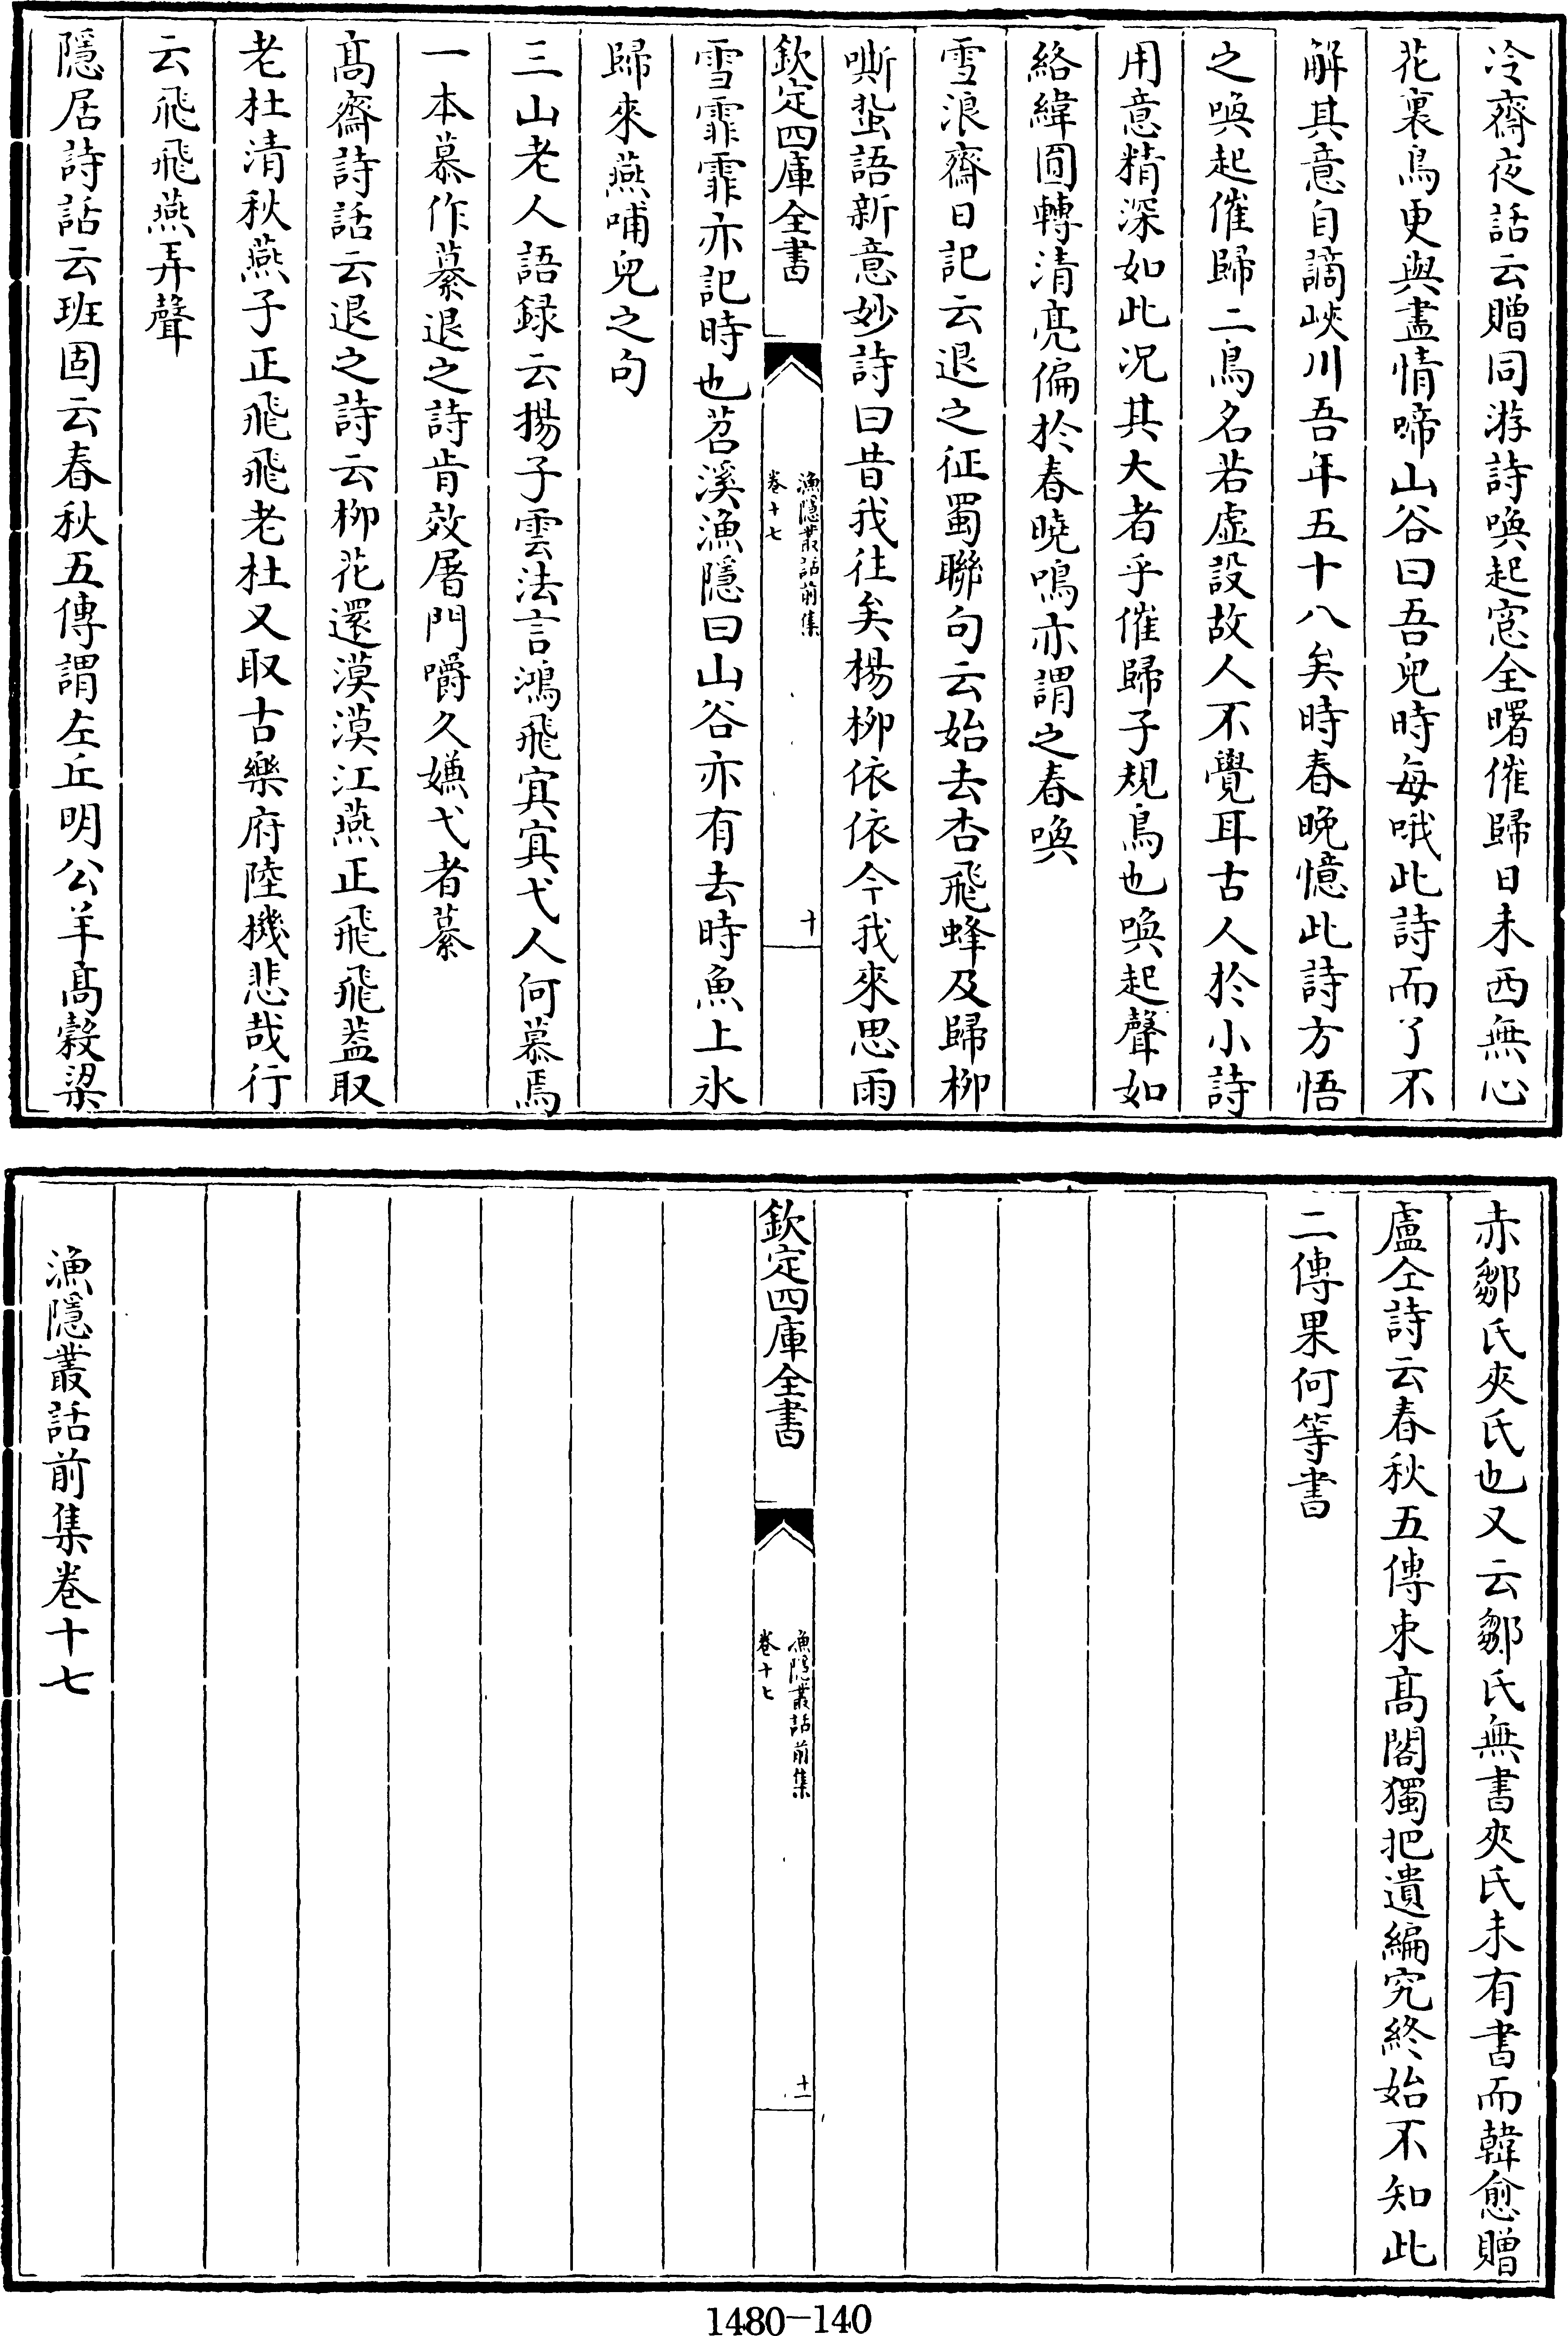 冷齋夜話云贈同游詩喚起窓全曙催歸日未西無心
花裏鳥更與盡情啼山谷曰吾兒時每哦此詩而了不
解其意自謫峽川吾年五十八矣時春晚憶此詩方悟
之喚起催歸二鳥名若虛設故人不覺耳古人於小詩
用意精深如此况其大者乎催歸子規鳥也喚起聲如
絡緯圓轉清亮偏於春曉鳴亦謂之春喚
雪浪齋日記云退之征蜀聯句云始去杏飛蜂及歸柳
嘶蛩語新意妙詩曰昔我往矣楊柳依依今我來思雨
欽定四庫全書
漁隱叢話前集
卷十七
十
雪霏霏亦記時也苕溪漁隱曰山谷亦有去時魚上氷
歸來燕哺兒之句
三山老人語録云揚子雲法言鴻飛寘寘弋人何慕焉
一本慕作纂退之詩肯效屠門嚼久嫌弋者纂
髙齋詩話云退之詩云柳花還漠漠江燕正飛飛葢取
老杜清秋燕子正飛飛老杜又取古樂府陸機悲哉行
云飛飛燕弄聲
隱居詩話云班固云春秋五傳謂左丘明公羊髙穀梁
赤鄒氏夾氏也又云鄒氏無書夾氏未有書而韓愈贈
盧仝詩云春秋五傳束髙閣獨把遺編究終始不知此
二傳果何等書
欽定四庫全書
漁隱叢話前集
卷十七
十一
漁隱叢話前集卷十七
1480-140